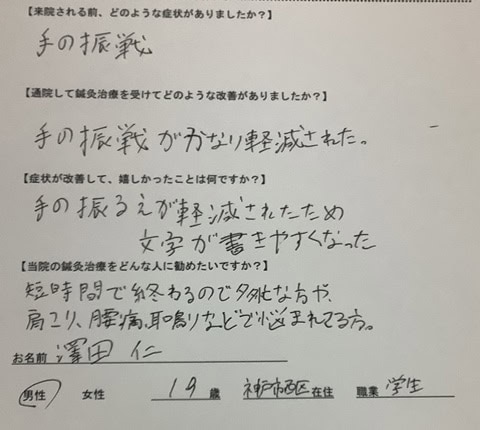 【来院される前、どのような症状がありましたか？】
手の振戦
【通院して鍼灸治療を受けてどのような改善がありましたか？】
手の振戦がかなり軽減された。
【症状が改善して、嬉しかったことは何ですか？】
手の振るえが軽減されたため
文字が書きやすくなった
【当院の鍼灸治療をどんな人に勧めたいですか？】
短時間で終わるので多忙な方や、
肩こり、腰痛、耳鳴りなどで悩まれてる方。
お名前 澤田 仁
男性 女性 19 歳 神戸市西区 在住 職業 学生